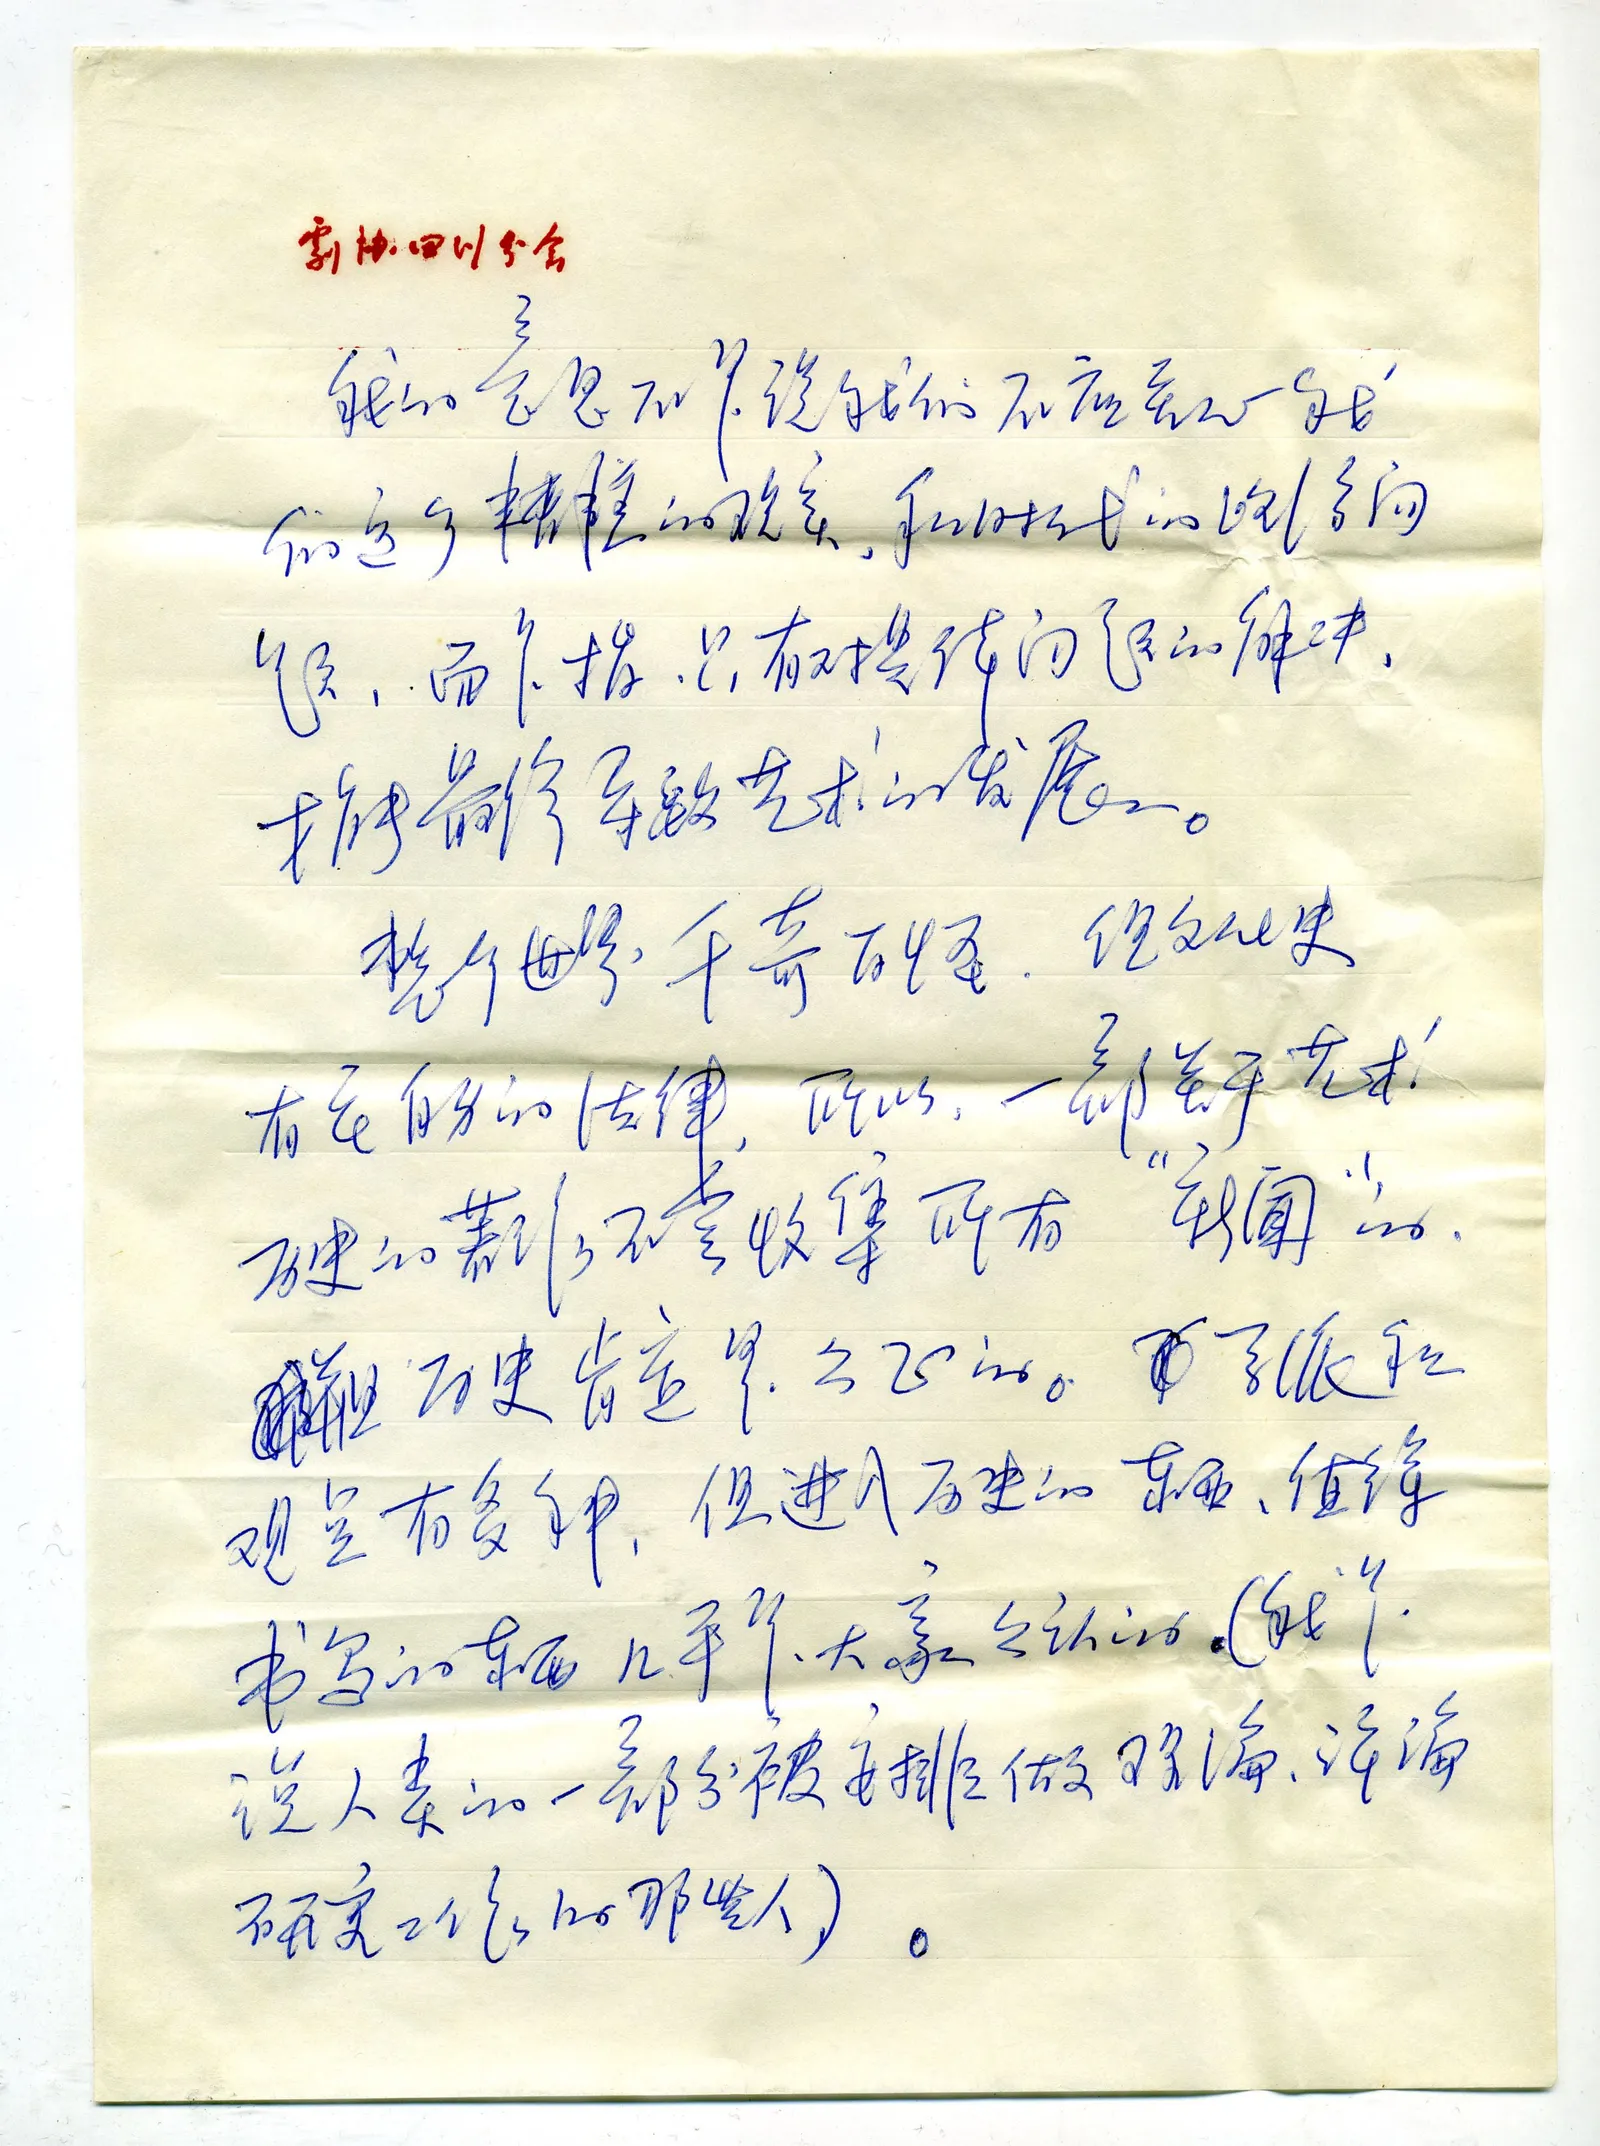 剧协四川分会
我的意思不是说我们不应关心我
们这个精糕的现实,和时代的些问
题,而是指只有对具体问题的解决,
才能最终导致艺术的发展。
整个世界千奇百怪.但文化史
有它自身的法律,所以,一部关于艺术
历史的著作不会收集所有“新闻”的.
但历史肯定是公正的。学派和
观点有多种,但进入历史的东西、值得
书写的东西几乎是大家公认的.(我是
说人类的一部分被安排做理论、评论
研究工作的那些人)。